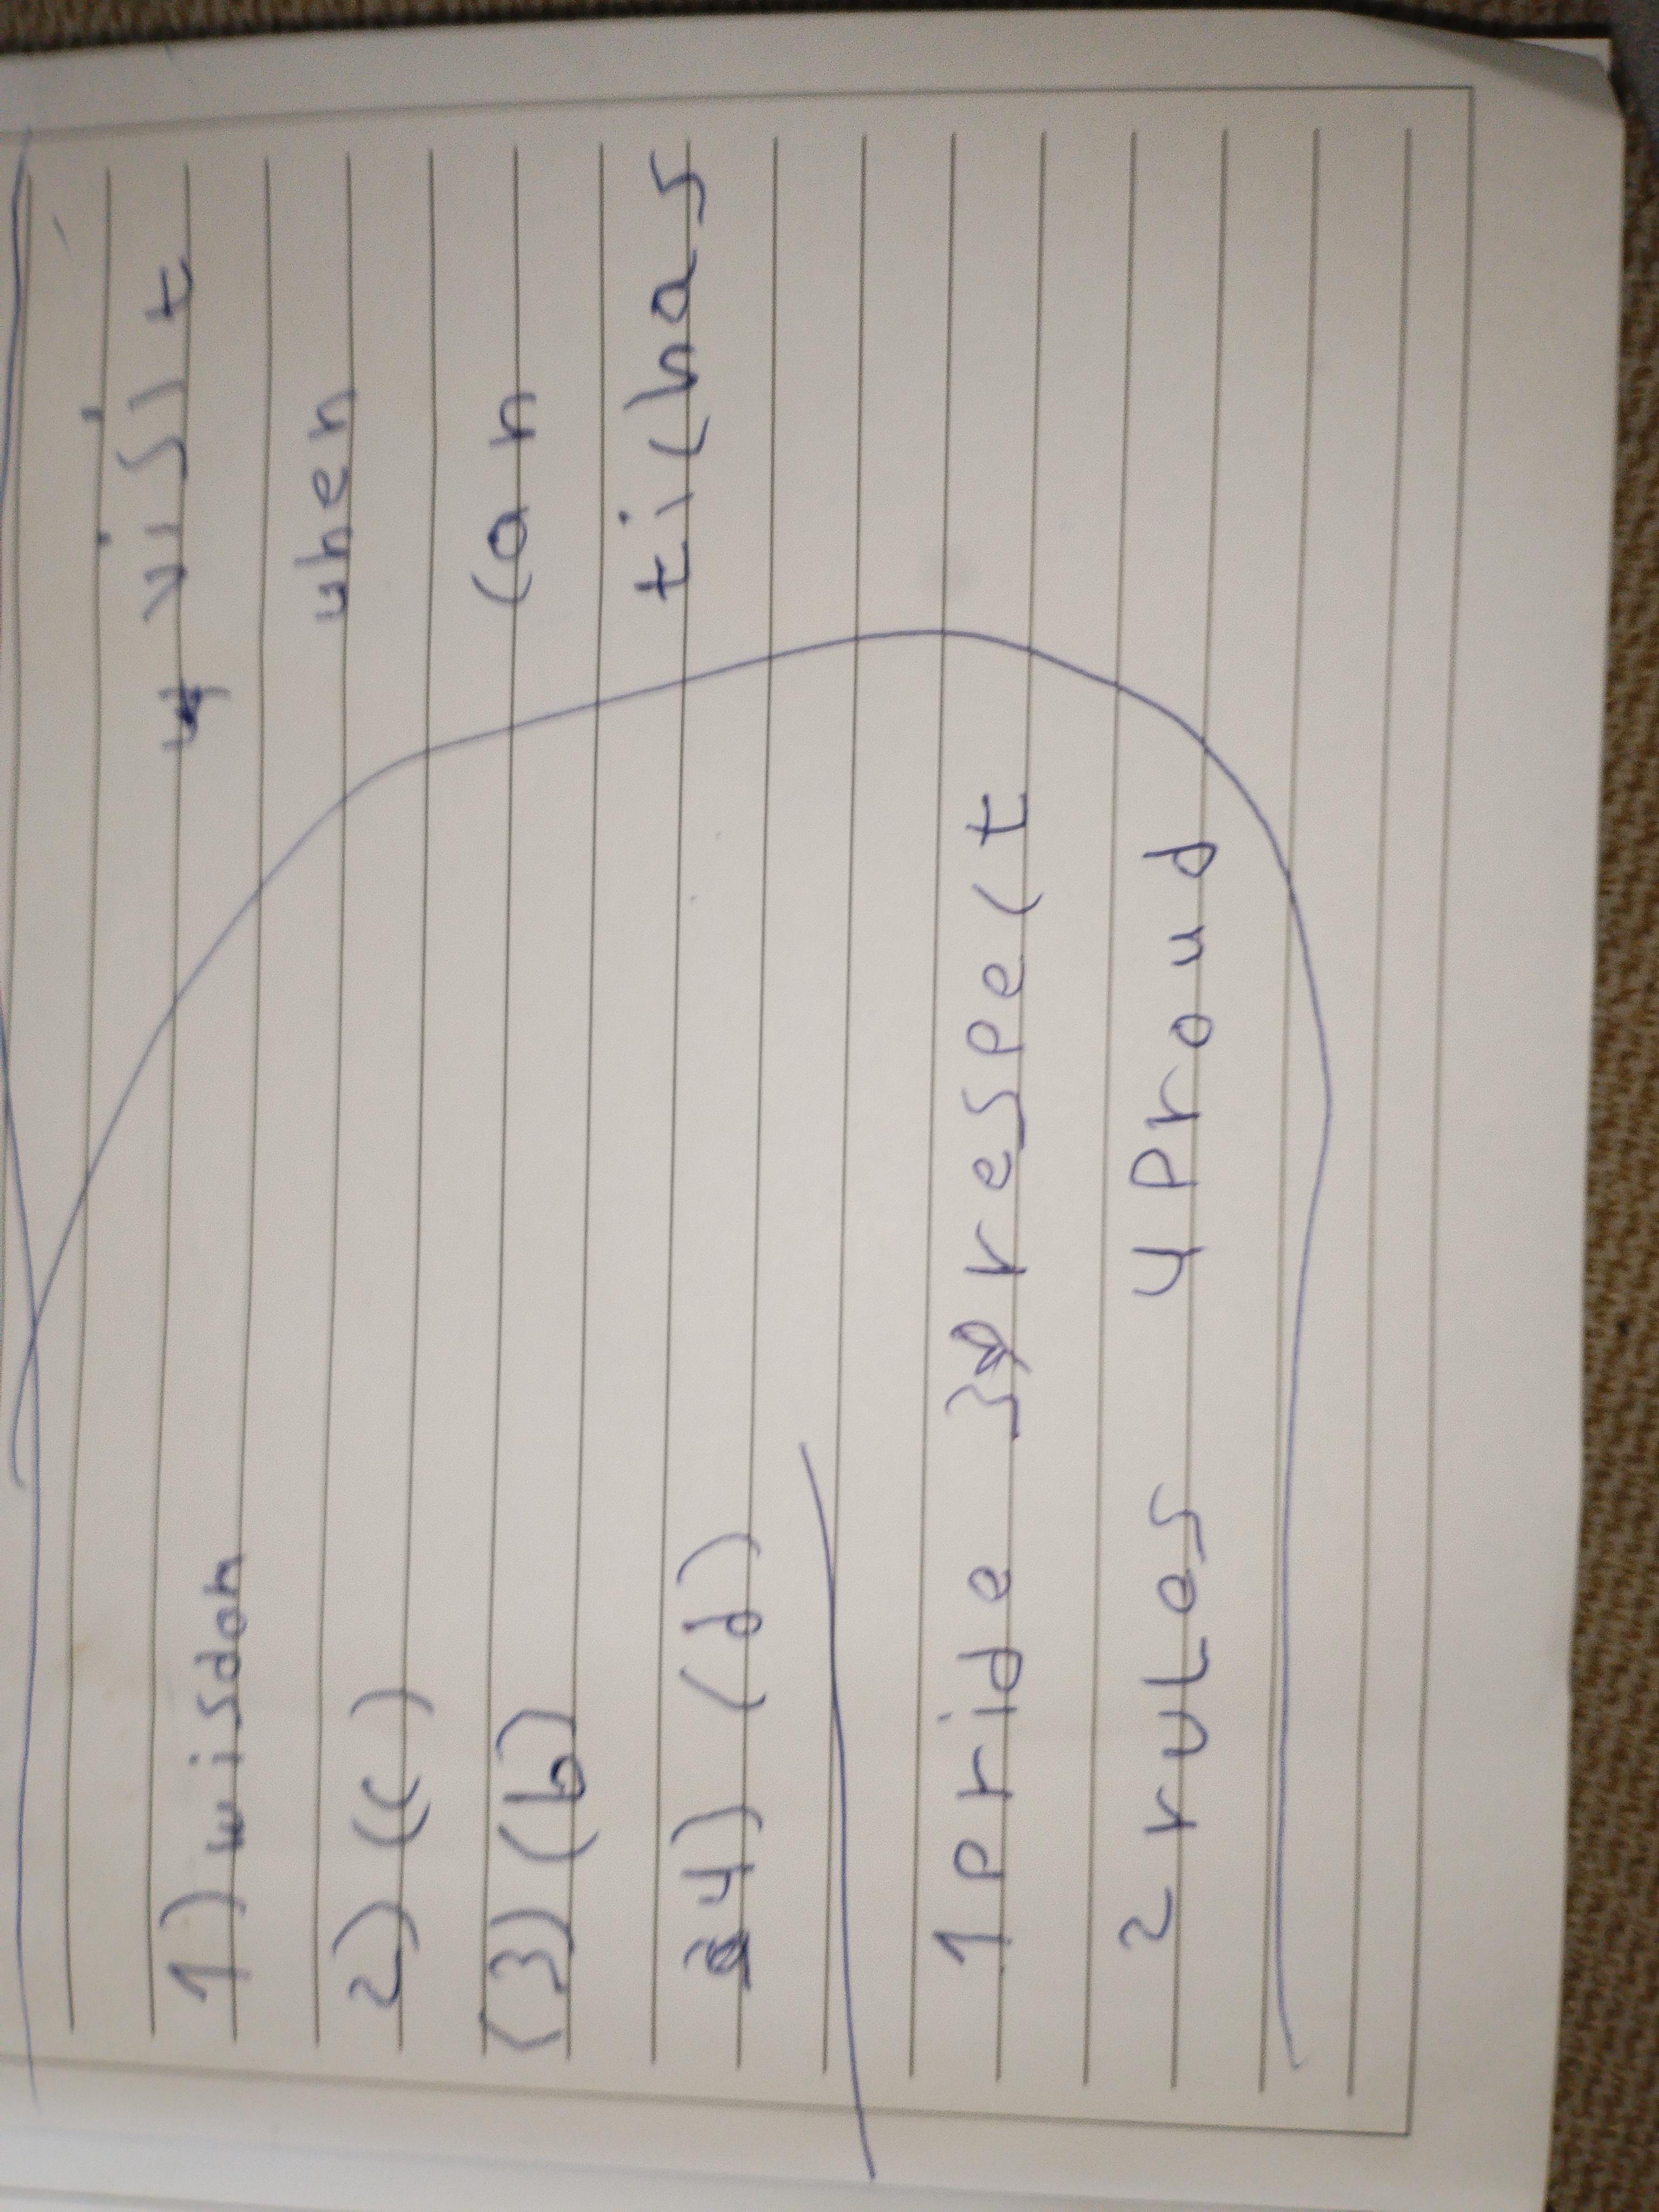 1) wisdom
2) (c)
(3) (b)
4) (d)
1 pride 3 respect
2 rules 4 Proud
4 visit
when
can